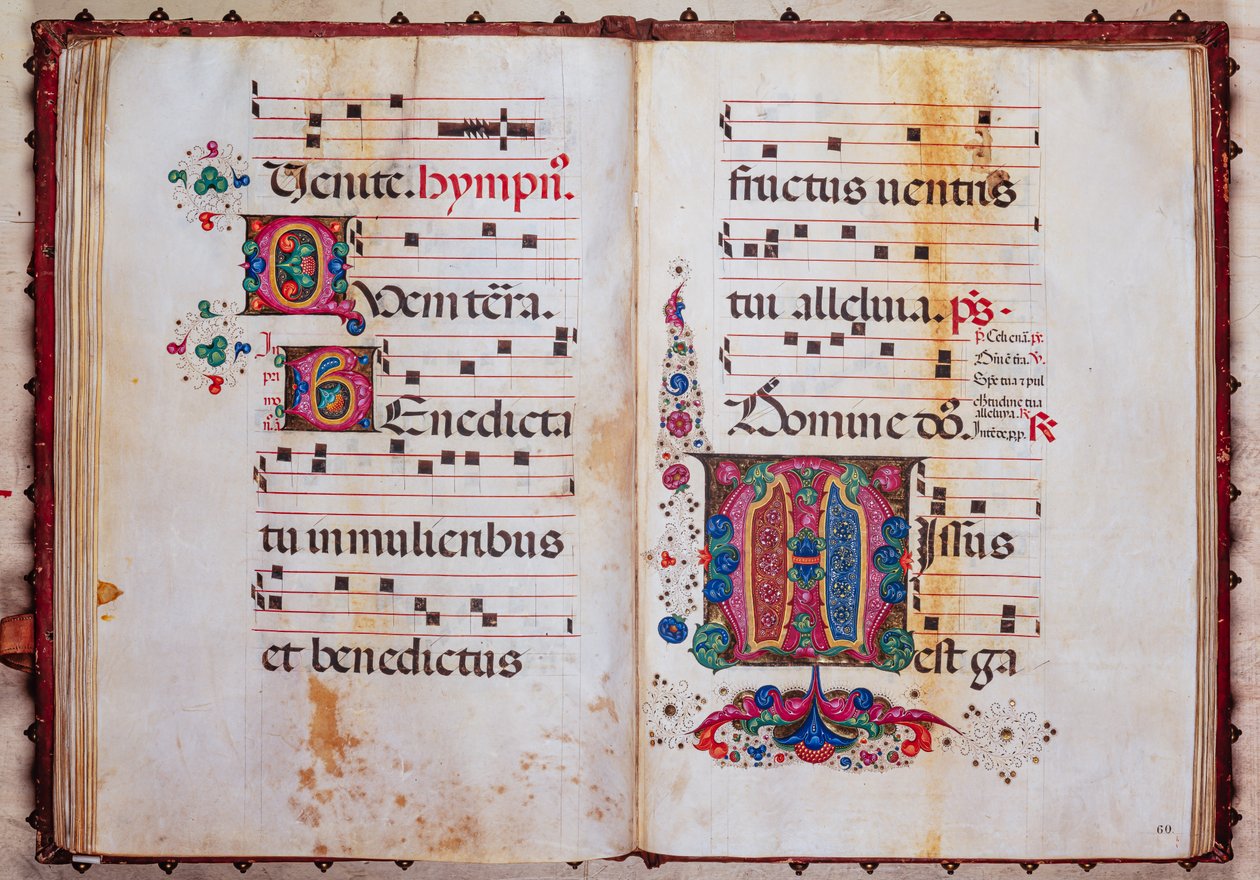 Venite. hympñ.
QVem tēra.
In
pri
mo
BEnedicta
tu in mulieribus
et benedictus
fructus uentris
tui alleluia. ps̄.
Celi enā. ps̄.
Dñi ē tra. V.
Spē tua ⁊ pul
chtudine tua
alleluya. R
Domine dñs.
Intēde, p̄p. R
MIssus
est ga
60.